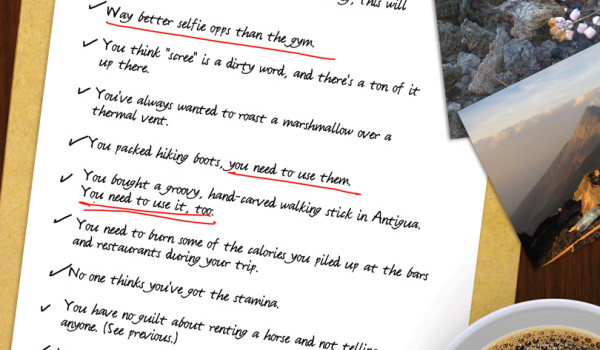 this will
Way better selfie opps than the gym.
You think "scree" is a dirty word, and there's a ton of it
up there.
You've always wanted to roast a marshmallow over a
thermal vent.
You packed hiking boots, you need to use them.
You bought a groovy, hand-carved walking stick in Antigua.
You need to use it, too.
You need to burn some of the calories you piled up at the bars
and restaurants during your trip.
No one thinks you've got the stamina.
You have no guilt about renting a horse and not telling
anyone. (See previous.)